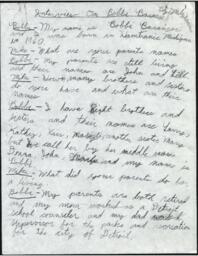 Interview On Bobbi
Bobbi - My name is Bobbi
was born in Michigan
in 1960
- What are your parents
names
Bobbi - My parents are still living
their names are John and
- How many brothers and sisters
do you have and what are their
names
Bobbi - I have eight brothers and
sisters and their names are
Kathy, Ken,
but we call her by her middle name
Donna, John, and my name is
Bobbi
- What did your parents do for
a living
Bobbi - My parents are both retired
and my mom worked as a Detroit
school counselor and my dad worked
supervisor for the parks and recreation
for the city of Detroit